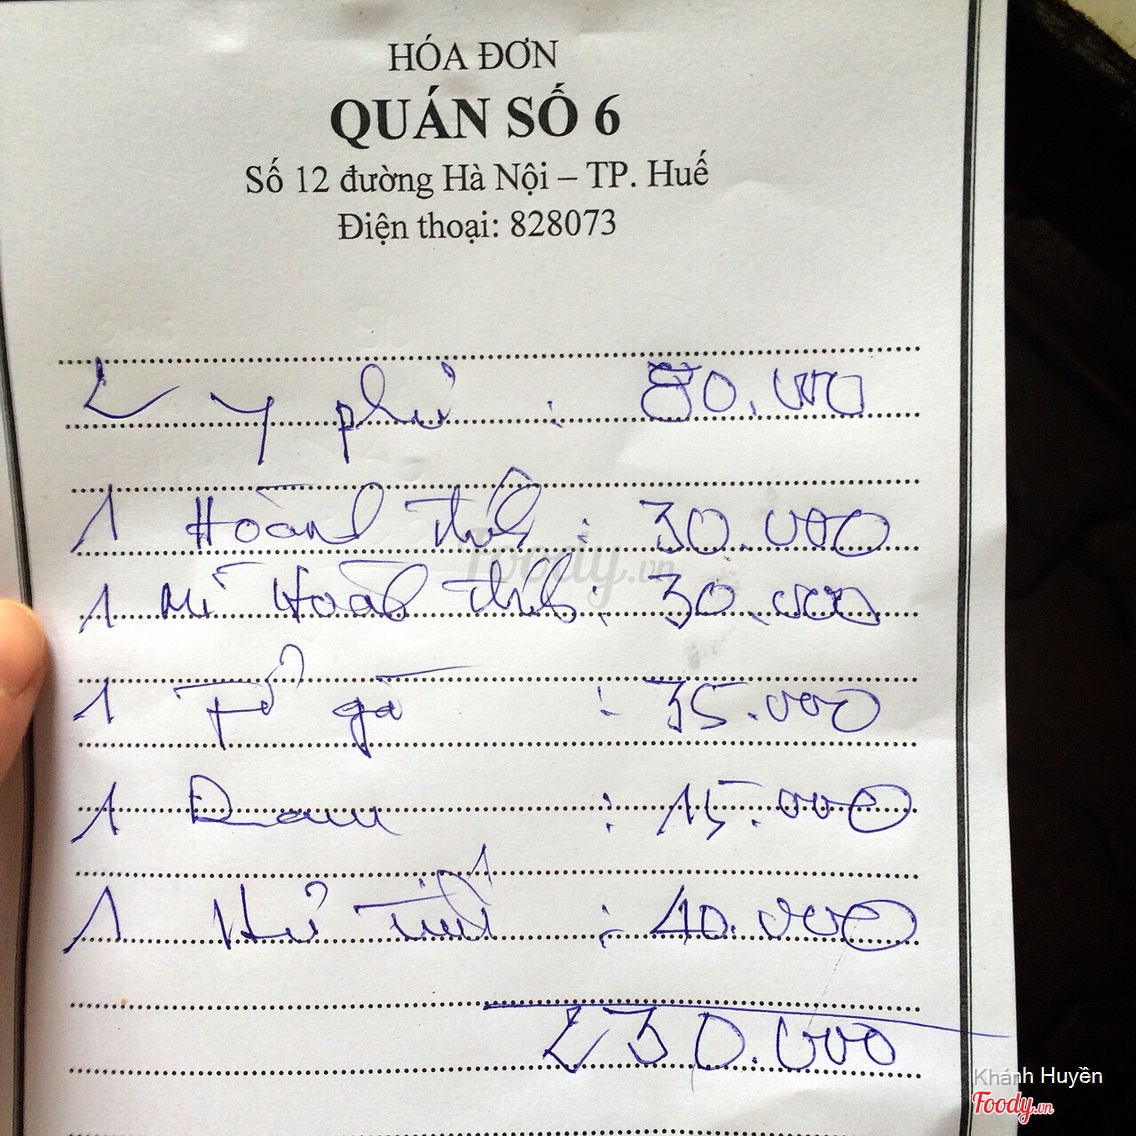 HÓA ĐƠN
QUÁN SỐ 6
Số 12 đường Hà Nội – TP. Huế
Điện thoại: 828073
2 y phủ : 80.000
1 Hoành thánh : 30.000
1 Mì Hoành thánh : 30.000
1 gà : 35.000
1 : 15.000
1 Hủ tiếu : 40.000
230.000
Foody.vn
Khánh Huyền
Foody.vn